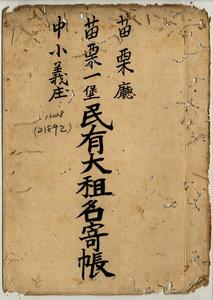 苗栗廳
苗栗一堡民有大租名寄帳
中小義庄
(21892)